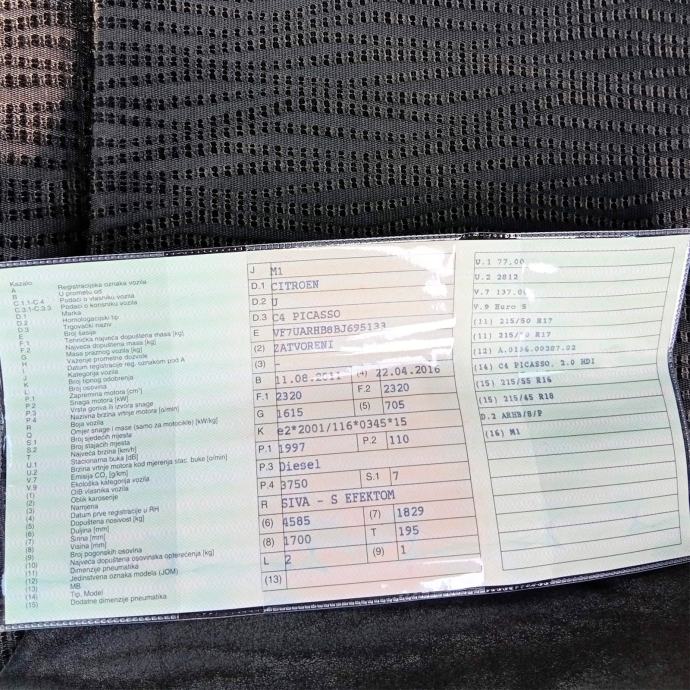 Kazalo:
A Registracijska oznaka vozila
B U prometu od
C.1.1-C.4 Podaci o vlasniku vozila
C.3.1-C.3.3 Podaci o korisniku vozila
D.1 Marka
D.2 Homologacijski tip
D.3 Trgovački naziv
E Broj šasije
F.1 Tehnička najveća dopuštena masa [kg]
F.2 Najveća dopuštena masa [kg]
G Masa praznog vozila [kg]
H Važenje prometne dozvole
I Datum registracije reg. oznakom pod A
J Kategorija vozila
K Broj tipnog odobrenja
L Broj osovina
P.1 Zapremina motora [cm³]
P.2 Snaga motora [kW]
P.3 Vrsta goriva ili izvora snage
P.4 Nazivna brzina vrtnje motora [o/min]
R Boja vozila
Q Omjer snage i mase (samo za motocikle) [kW/kg]
S.1 Broj sjedećih mjesta
S.2 Broj stajaćih mjesta
T Najveća brzina [km/h]
U.1 Stacionarna buka [dB]
U.2 Brzina vrtnje motora kod mjerenja stac. buke [o/min]
V.7 Emisija CO₂ [g/km]
V.9 Ekološka kategorija vozila
(1) OIB vlasnika vozila
(2) Oblik karoserije
(3) Namjena
(4) Datum prve registracije u RH
(5) Dopuštena nosivost [kg]
(6) Duljina [mm]
(7) Širina [mm]
(8) Visina [mm]
(9) Broj pogonskih osovina
(10) Najveća dopuštena osovinska opterećenja [kg]
(11) Dimenzije pneumatika
(12) Jedinstvena oznaka modela (JOM)
(13) MB
(14) Tip, Model
(15) Dodatne dimenzije pneumatika
J M1
D.1 CITROEN
D.2 U
D.3 C4 PICASSO
E VF7UARHB8BJ695133
(2) ZATVORENI
(3) -
B 11.08.2011 (4) 22.04.2016
F.1 2320 F.2 2320
G 1615 (5) 705
K e2*2001/116*0345*15
P.1 1997 P.2 110
P.3 Diesel
P.4 3750 S.1 7
R SIVA - S EFEKTOM
(6) 4585 (7) 1829
(8) 1700 T 195
L 2 (9) 1
(13)
U.1 77.00
U.2 2812
V.7 137.00
V.9 Euro 5
(11) 215/50 R17
(11) 215/50 R17
(14) C4 PICASSO, 2.0 HDI
(15) 215/55 R16
(15) 215/45 R18
D.2 ARHB/8/P
(16) M1